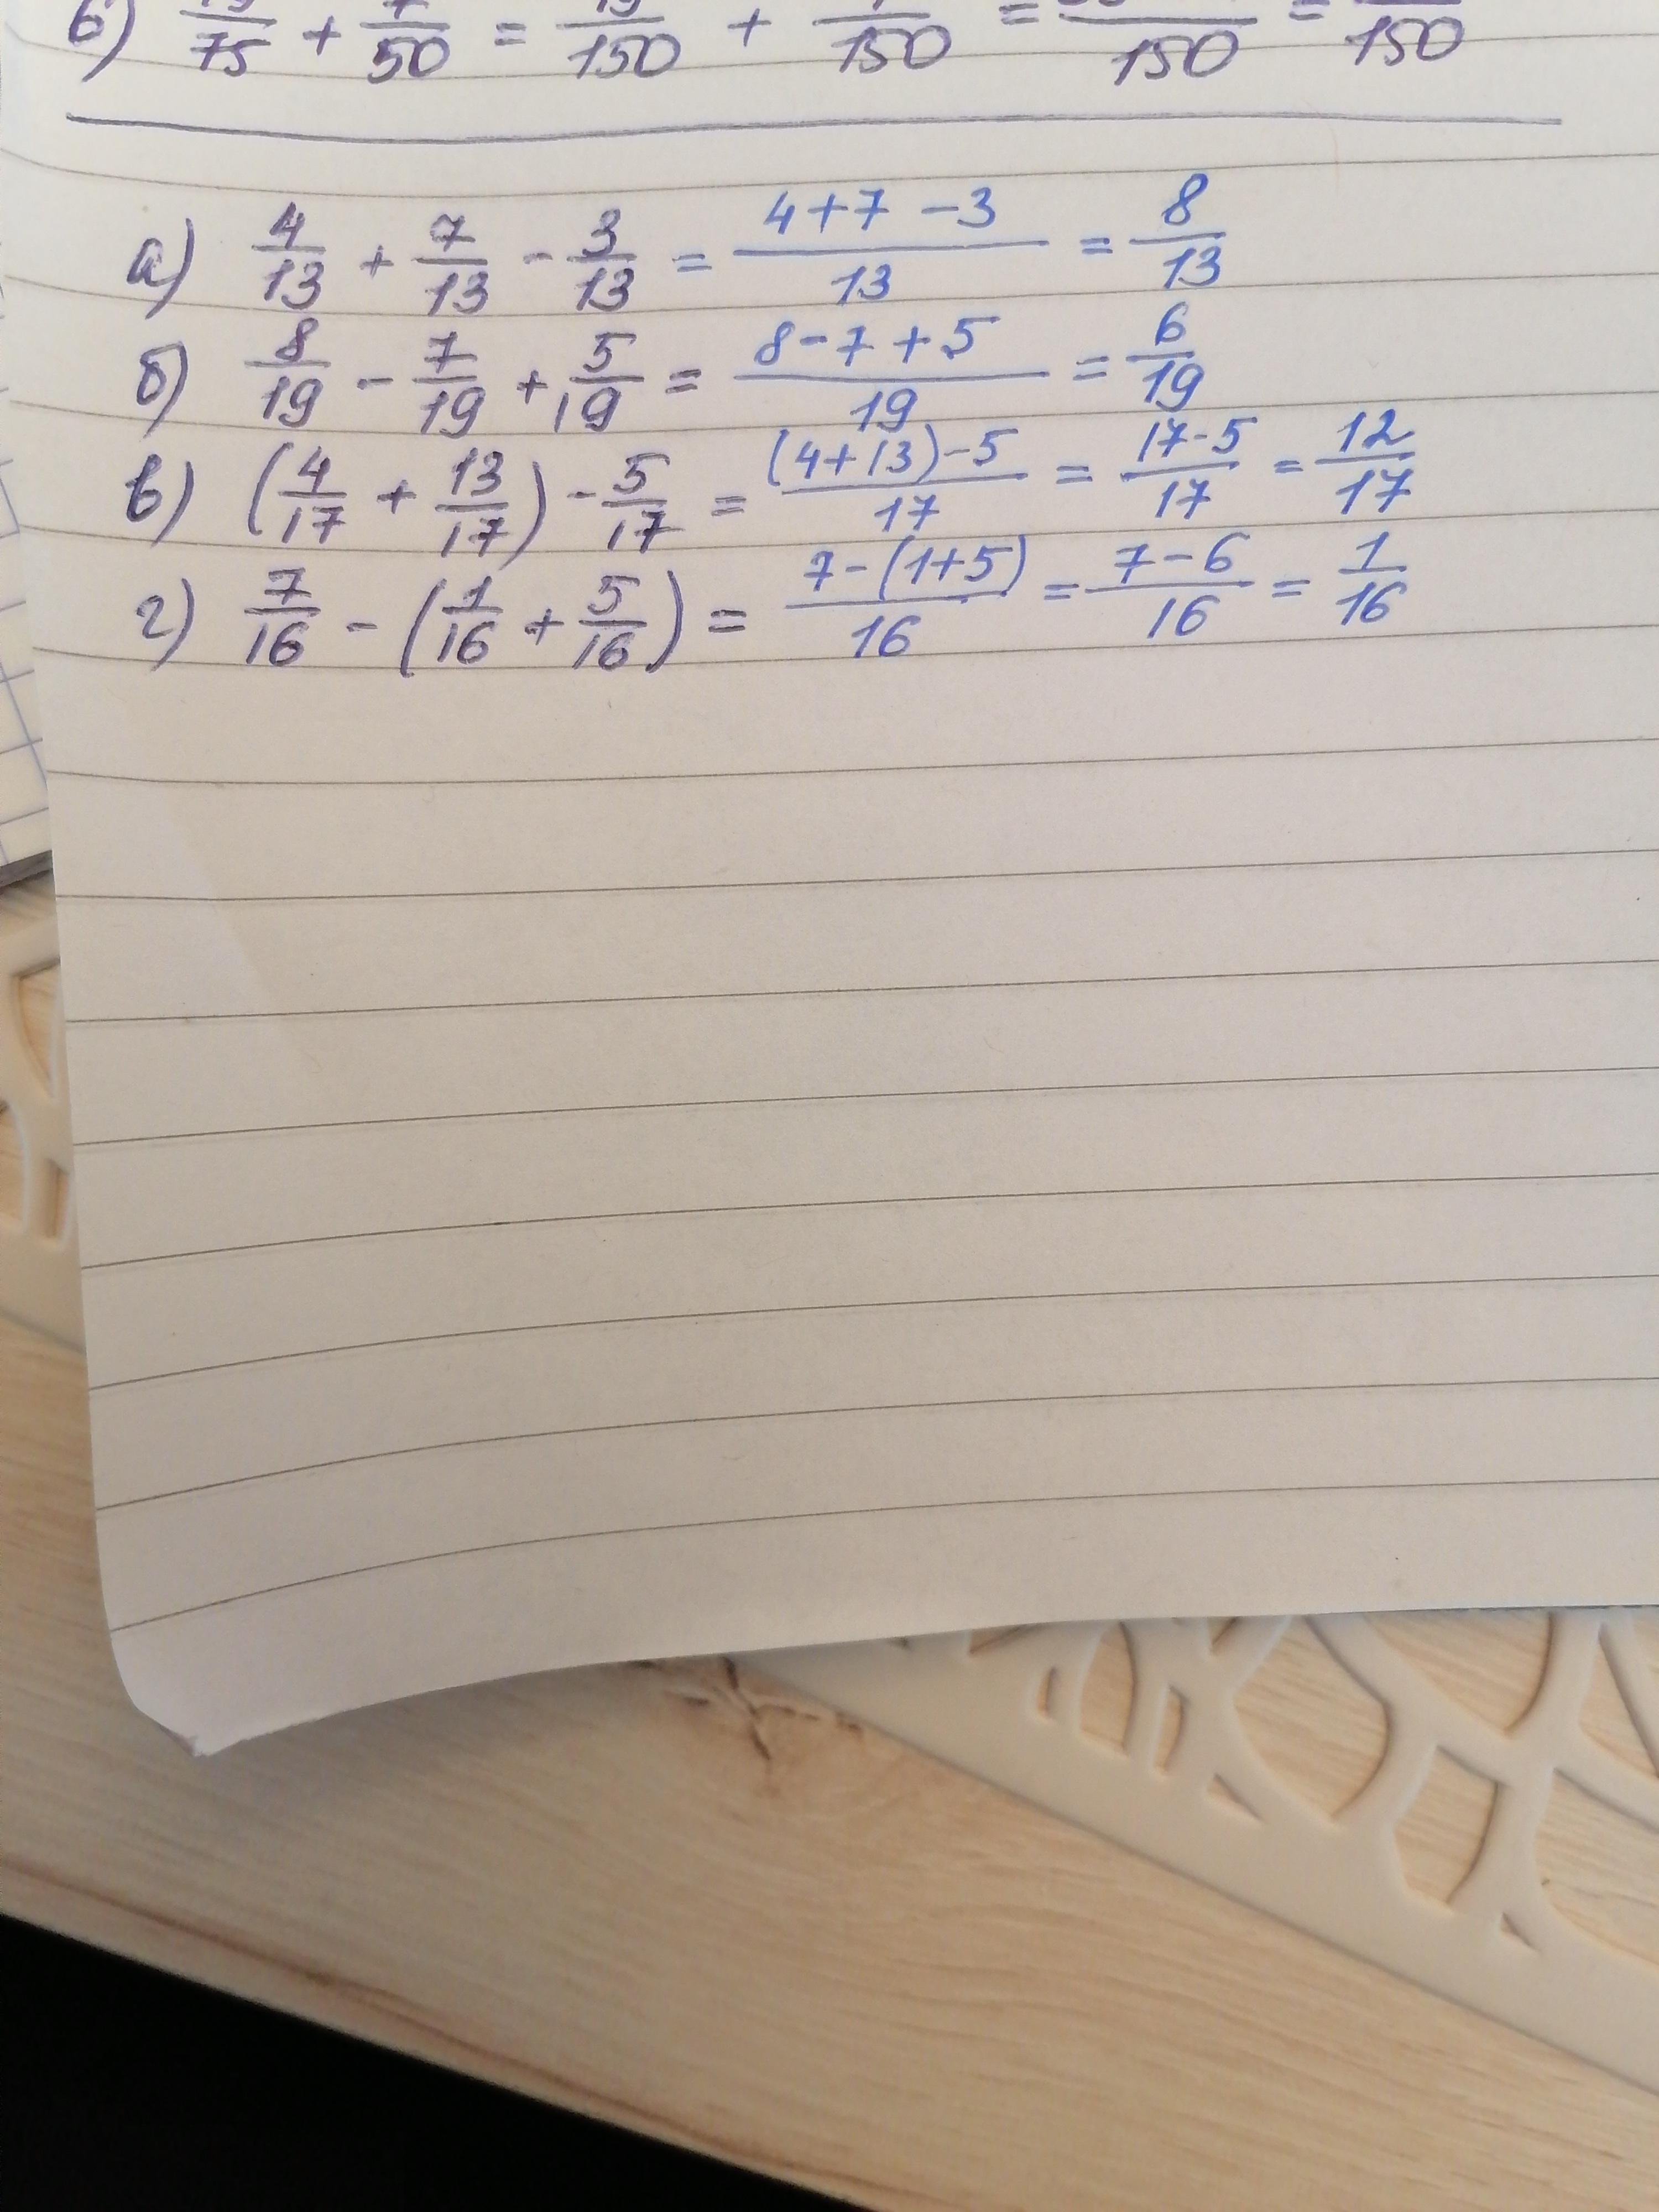 б) /75 + 7/50 = /150 + /150 = /150 = /150
а) 4/13 + 7/13 - 3/13 = (4+7-3)/13 = 8/13
б) 8/19 - 7/19 + 5/19 = (8-7+5)/19 = 6/19
в) (4/17 + 13/17) - 5/17 = ((4+13)-5)/17 = (17-5)/17 = 12/17
г) 7/16 - (1/16 + 5/16) = (7-(1+5))/16 = (7-6)/16 = 1/16